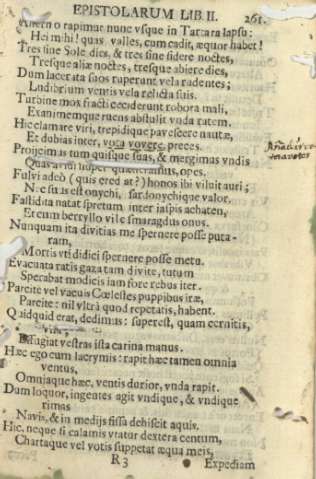 EPISTOLARUM LIB. II. 261.
rapimur nunc vsque in Tartara lapsu:
Hei mihi! quas valles, cum cadit, æquor habet!
Tres sine Sole dies, & tres sine sidere noctes,
Tresque aliæ noctes, tresque abiere dies,
Dum lacerata suos ruperunt vela rudentes;
Ludibrium ventis vela relicta suis.
Turbine mox fracti ceciderunt robora mali,
Exanimemque ruens abstulit vnda ratem.
Hic clamare viri, trepidique pavescere nautæ,
Et dubias inter, vota vovere, preces.
Projicimus tum quisque suas, & mergimus vndis
nuper opes.
Fulvi adeò (quis ered at?) honos ibi viluit auri;
Nec suus est onychi, sardonychique valor.
Fastidita natat spretum inter iaspis achaten,
Et cum beryllo vile smaragdus onus.
Nunquam ita divitias me spernere posse puta-
ram,
Mortis vti didici spernere posse metu.
Evacuata ratis gaza tam divite, tutum
Sperabat modicis iam fore rebus iter.
Parcite vel vacuis Cœlestes puppibus iræ,
Parcite: nil vltrà quod repetatis, habent.
Quidquid erat, dedimus: superest, quam cernitis,
vna,
Effugiat vestras ista carina manus.
Hæc ego cum lacrymis: rapit hæc tamen omnia
ventus,
Omniaque hæc, ventis durior, vnda rapit.
Dum loquor, ingentes agit vndique, & vndique
rimas
Navis, & in medijs fissa dehiscit aquis.
Hic, neque si calamis vtatur dextera centum,
Chartaque vel votis suppetat æqua meis,
R 3 Expediam